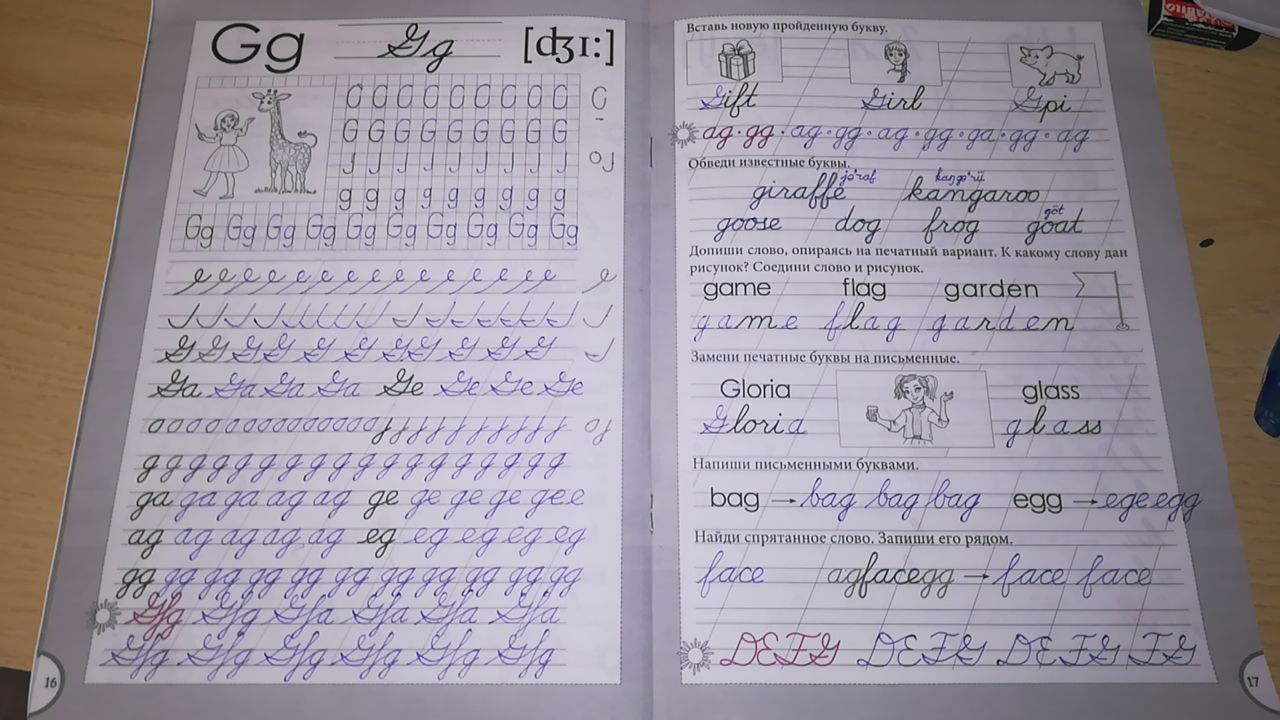 Gg Gg [ʤɪ:]
G G G G G G G G G
g g g g g g g g g
Gg Gg Gg Gg Gg Gg Gg Gg Gg Gg
G G G G G G G G G G
Ga Ga Ga Ga Ge Ge Ge Ge
g g g g g g g g g g g g g g g g g g
ga ga ga ag ag ge ge ge ge gee
ag ag ag ag ag eg eg eg eg eg
gg gg gg gg gg gg gg gg gg gg gg
16
Вставь новую пройденную букву.
Gift Girl Gpi
ag·gg·ag·gg·ag·gg·ga·gg·ag
Обведи известные буквы.
giraffe kangaroo
goose dog frog goat
Допиши слово, опираясь на печатный вариант. К какому слову дан
рисунок? Соедини слово и рисунок.
game flag garden
game flag garden
Замени печатные буквы на письменные.
Gloria glass
Gloria glass
Напиши письменными буквами.
bag → bag bag bag egg → ege egg
Найди спрятанное слово. Запиши его рядом.
face agfacegg → face face
DEFG DEFG DEFG FG
17